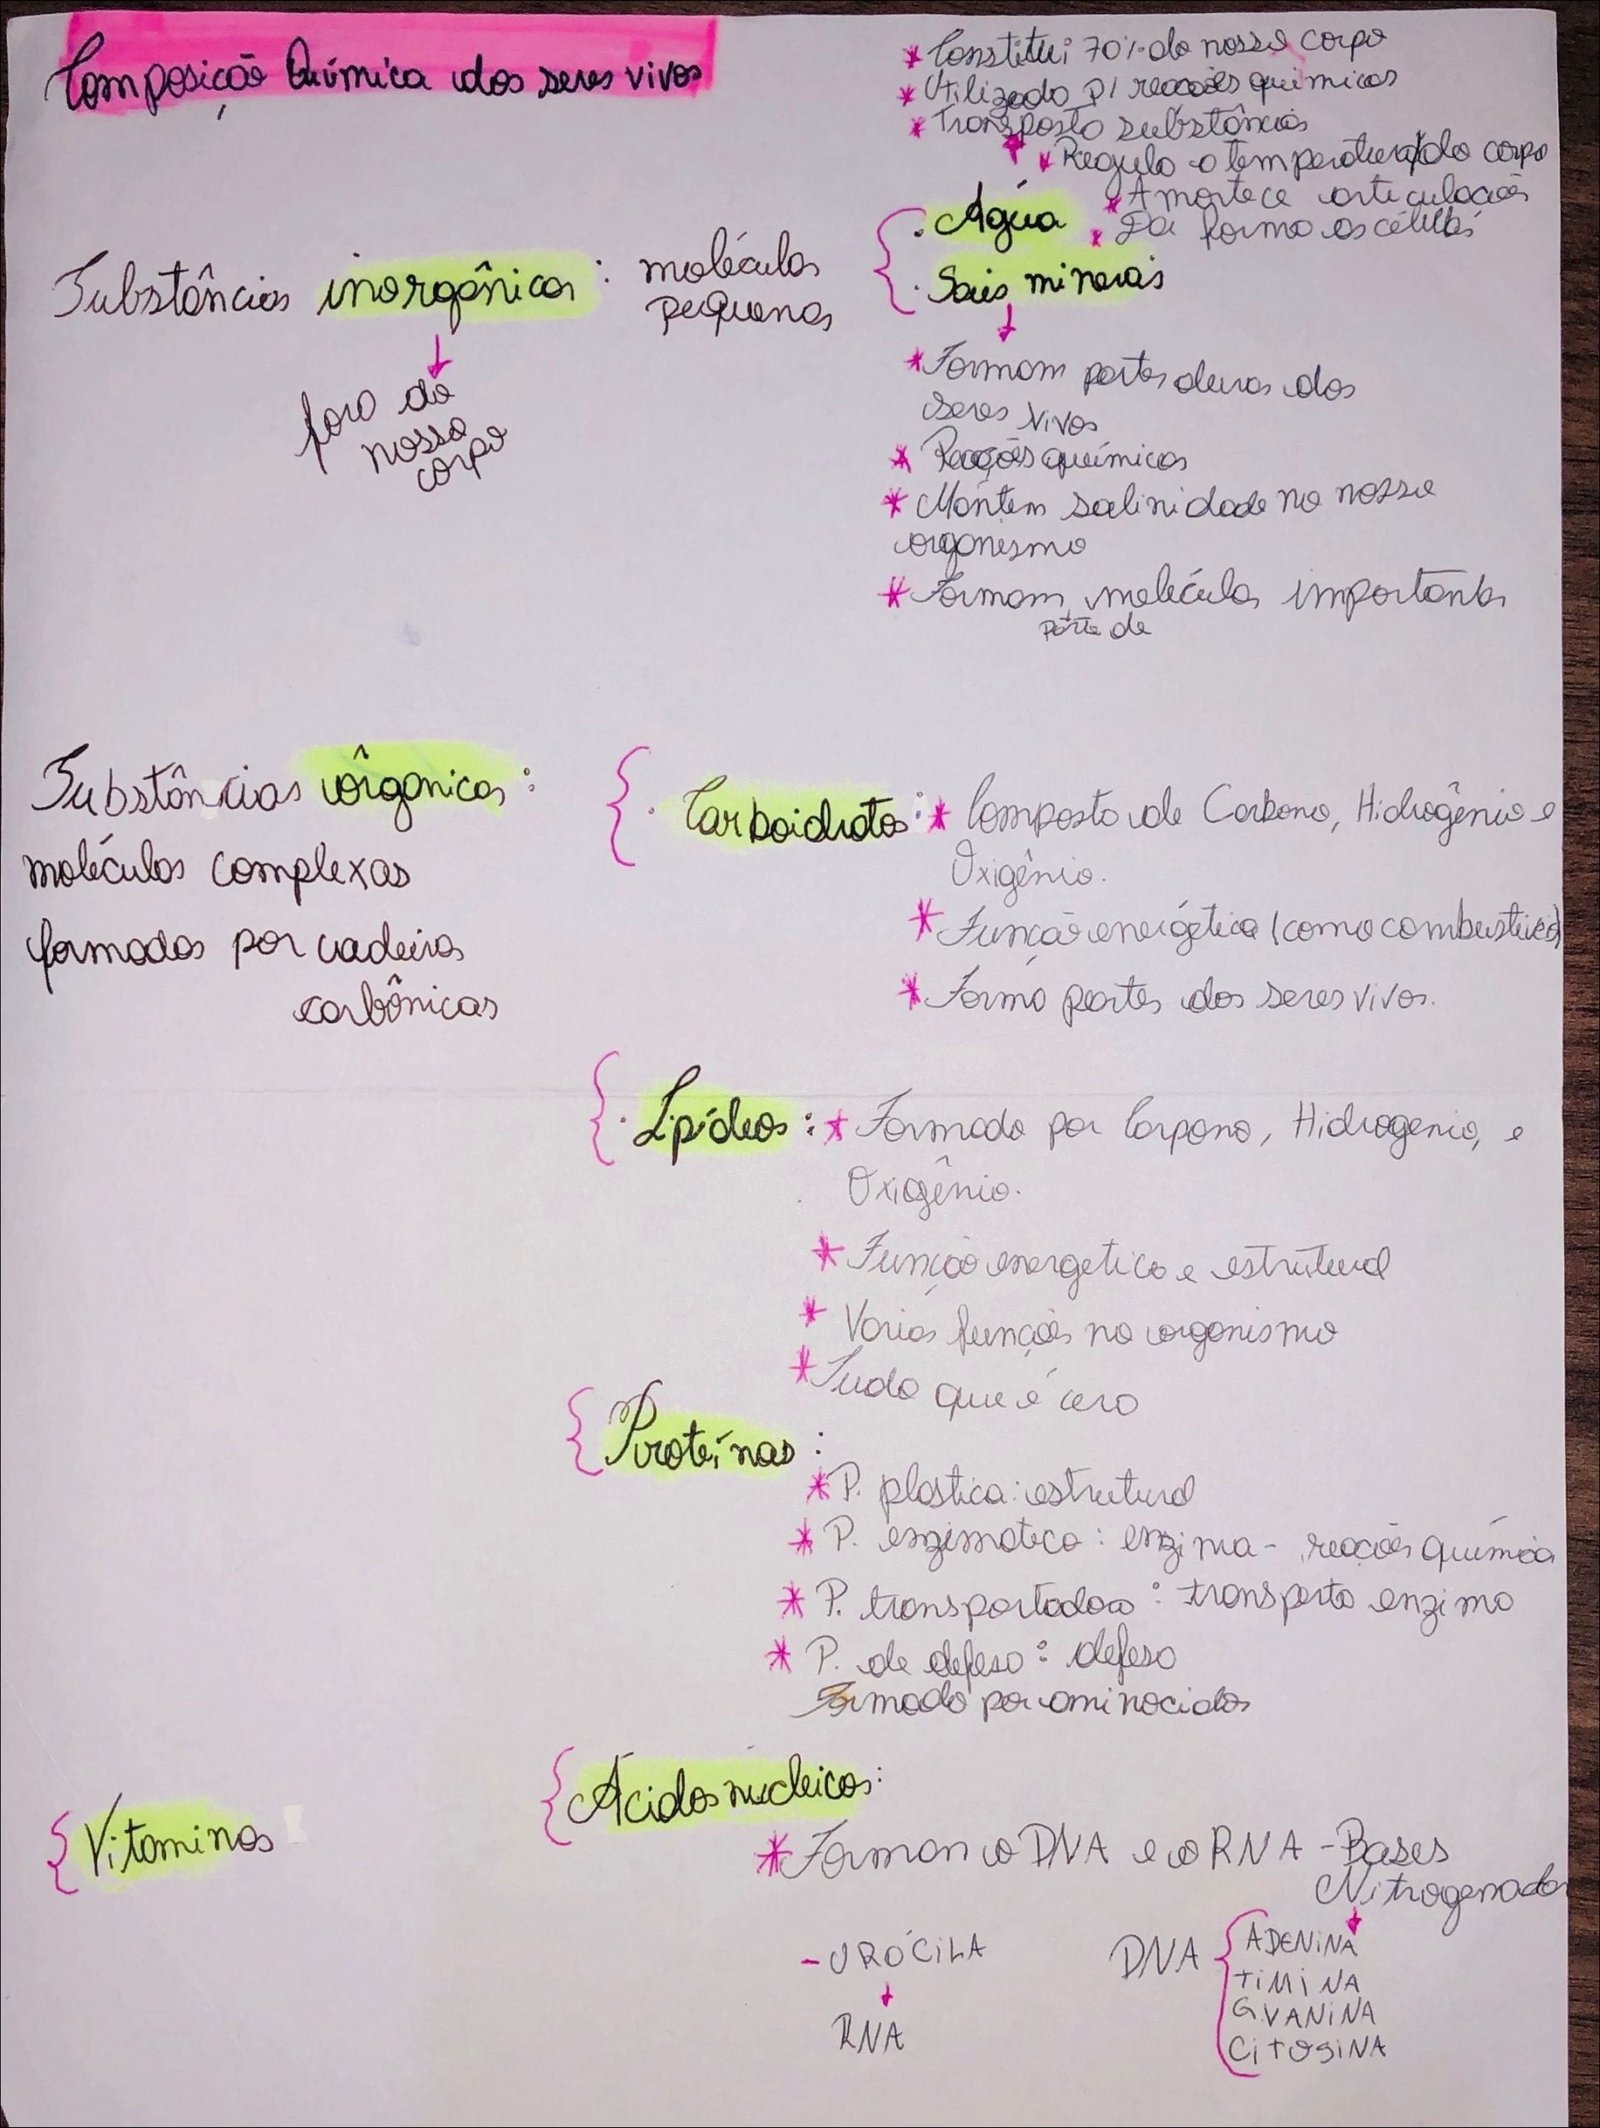 Composição Química dos seres vivos
* Constitui 70% do nosso corpo
* Utilizado p/ reações químicas
* Transporta substâncias
* Regula a temperatura do corpo
* Amortece articulações
* Dá forma as células
. Água
. Sais minerais
Substâncias inorgânicas: moléculas
pequenas
fora do
nosso
corpo
* Formam partes duras dos
seres vivos
* Reações químicas
* Mantém salinidade no nosso
organismo
* Formam moléculas importantes
parte de
Substâncias orgânicas:
moléculas complexas
formadas por cadeias
carbônicas
. Carboidratos: * Composto de Carbono, Hidrogênio e
Oxigênio.
* Função energética (como combustível)
* Forma partes dos seres vivos.
. Lipídeos: * Formado por Carpono, Hidrogenio, e
Oxigênio.
* Função energetica e estrutural
* Varias funções no organismo
* Tudo que é cera
Proteínas:
* P. plastica: estrutural
* P. enzimatica: enzima - reações química
* P. transportadora: transporta enzima
* P. de defesa: defesa
Formado por aminoacidos
Ácidos nucleicos:
* Formam o DNA e o RNA - Bases
Nitrogenadas
Vitaminas
- URÓCILA
RNA
DNA
ADENINA
TIMINA
GUANINA
CITOSINA